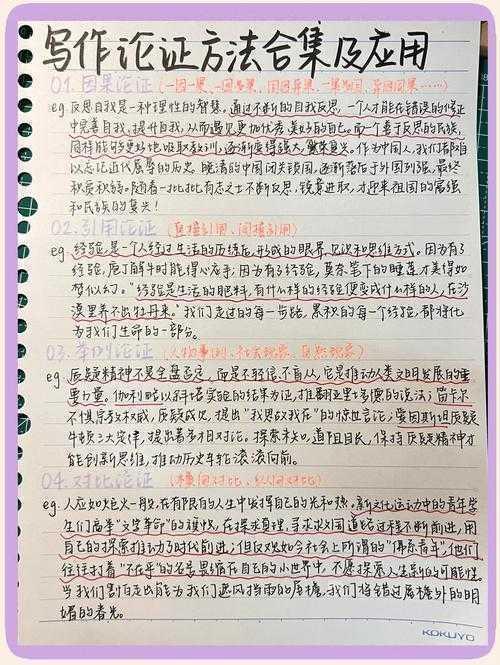 写作论证方法合集及应用
01. 因果论证 (一因一果、一因多果、同因异果、一果多因、异因同果……)
eg. 反思自我是一种理性的智慧。通过不断的自我反思，一个人才能在错误的修正
中完善自我、提升自我，从而遇见更加优秀、美好的自己。而一个善于反思的民族，
同样能够更好地吸取教训，逐渐变得强大、繁荣复兴。作为中国人，我们都难
以忘记近代屈辱的历史。晚清的中国闭关锁国，逐渐落后于外国列强，最终
积贫积弱。随着一批批有志之士不断反思，锐意进取，才迎来祖国的富强
和民族的复兴！
02. 引用论证 (直接引用、间接引用)
eg. 经验，是一个人经过生活的历练后，形成的眼界、见识和思维方式。因为有了
经验，庖丁解牛时能得心应手；因为有了经验，莫奈笔下的睡莲才美得如
梦似幻。"经验是生活的肥料，有什么样的经验便变成什么样的人，在沙
漠里养不出牡丹来。"我们走过的每一步路，累积的每一个经验，都将化
为我们生命的一部分。
03. 举例论证 (人物事例、社会现象、自然现象)
eg. 质疑精神不是全盘否定，而是不轻信、不盲从，它是推动人类文明发展的重
要力量。伽利略以斜塔实验的结果为证，推翻亚里士多德的说法；笛卡尔
不惧宗教权威，质疑成见，提出"我思故我在"的惊世言论；爱因斯坦质疑
牛顿三大定律，提出着名相对论。探索未知，道阻且长，保持质疑精神才
能创新思维，推动历史车轮滚滚向前。
04. 对比论证 (横向对比、纵向对比)
eg. 人应如炬火一般，在有限的人生中发挥自己的光和热。新文化运动中的青年学
生们高举"文学革命"的旗帜，在探求真理、寻求求国道路过程不断前进，用
自己的探索推动了时代前进；但反观如今社会上所谓的"佛系青年"，他们
往往打着"不在乎"的名号畏缩在自己的小世界中，不愿探索人生新的可能性。
当我们害怕走出能为我们遮风挡雨的屋檐，我们将错过屋檐外的明
媚的春光。
KOKUYO